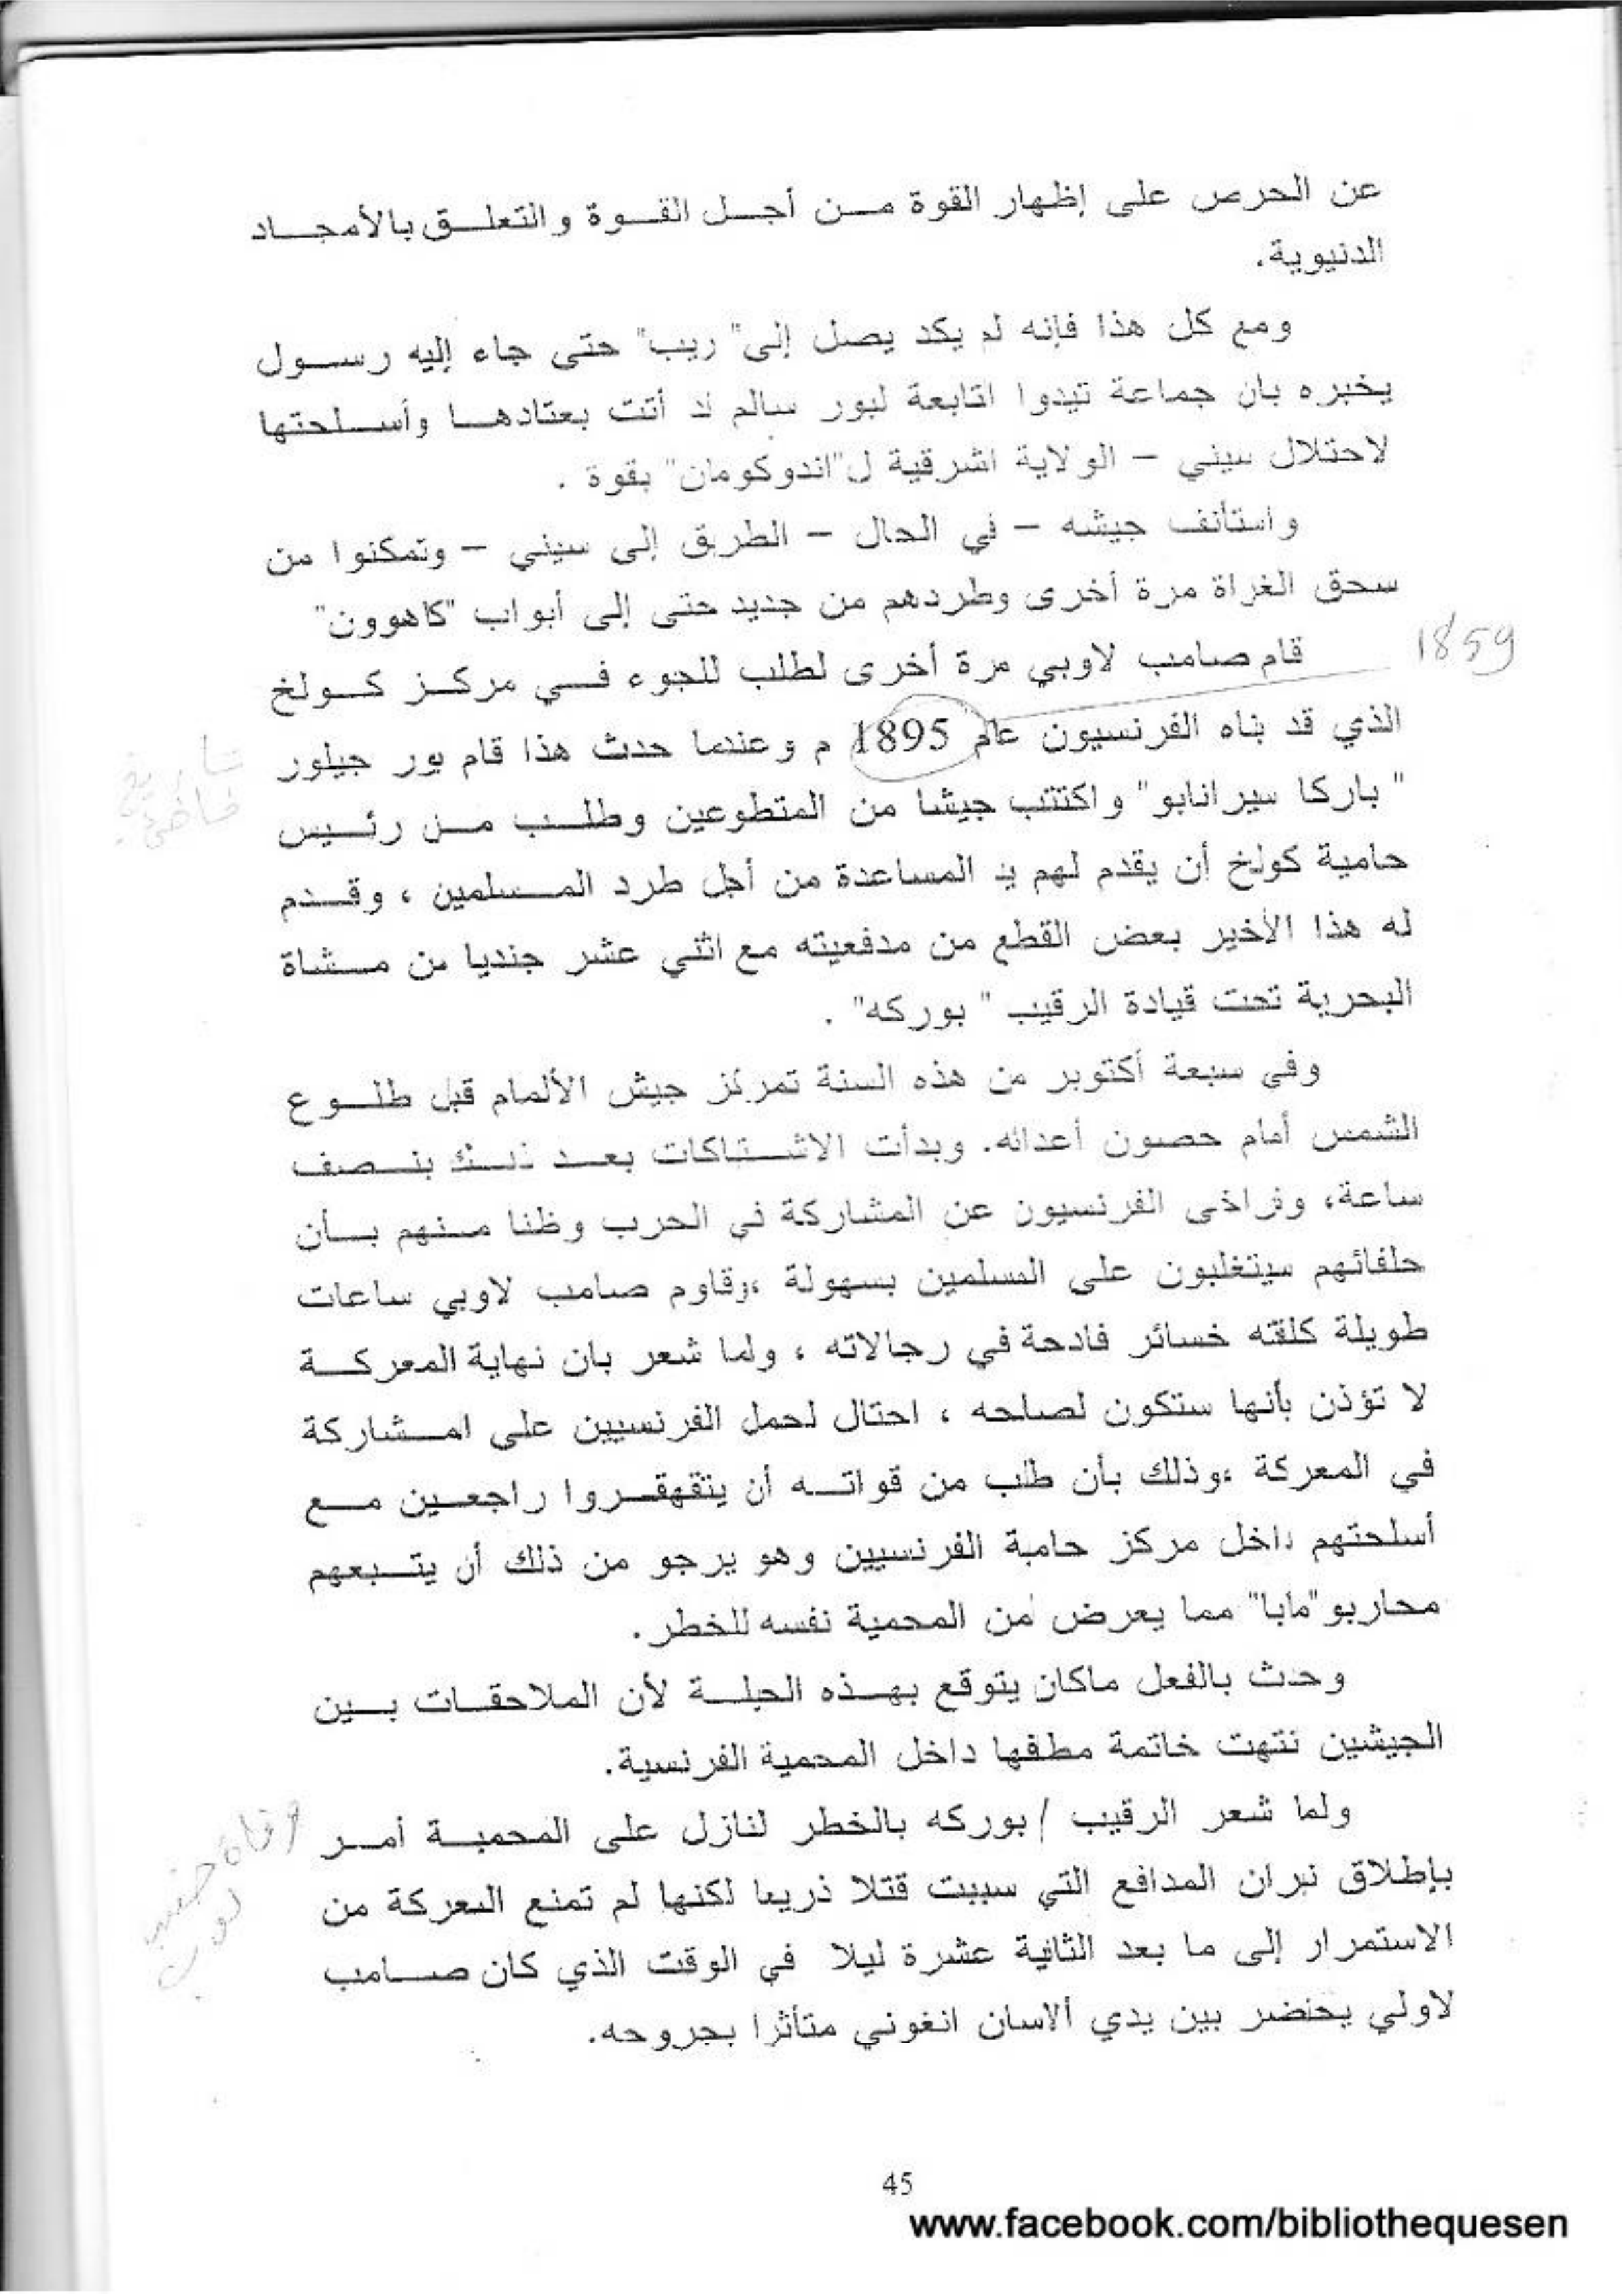 عن الحرص على إظهار القوة من أجل القوة والتعلق بالأمجاد
الدنيوية.
ومع كل هذا فإنه لم يكد يصل إلى" ريب" حتى جاء إليه رسول
يخبره بان جماعة تيدوا اتابعة لبور سالم قد أتت بعتادها وأسلحتها
لاحتلال سيني – الولاية اشرقية ل"اندوكومان" بقوة .
واستأنف جيشه – في الحال – الطريق إلى سيني – وتمكنوا من
سحق الغزاة مرة أخرى وطردهم من جديد حتى إلى أبواب "كاهوون"
1859
قام صامب لاوبي مرة أخرى لطلب للجوء في مركز كولخ
الذي قد بناه الفرنسيون عام 1895 م وعندما حدث هذا قام بور جيلور
تاريخ
خاطئ.
" باركا سيرانابو" واكتتب جيشا من المتطوعين وطلب من رئيس
حامية كولخ أن يقدم لهم يد المساعدة من أجل طرد المسلمين ، وقدم
له هذا الأخير بعض القطع من مدفعيته مع اثني عشر جنديا من مشاة
البحرية تحت قيادة الرقيب " بوركه" .
وفي سبعة أكتوبر من هذه السنة تمركز جيش الألمام قبل طلوع
الشمس أمام حصون أعدائه. وبدأت الاشتباكات بعد ذلك بنصف
ساعة، وتراخى الفرنسيون عن المشاركة في الحرب وظنا منهم بأن
حلفائهم سيتغلبون على المسلمين بسهولة ،وقاوم صامب لاوبي ساعات
طويلة كلفته خسائر فادحة في رجالاته ، ولما شعر بان نهاية المعركة
لا تؤذن بأنها ستكون لصلحه ، احتال لحمل الفرنسيين على امشاركة
في المعركة ،وذلك بأن طلب من قواته أن يتقهقروا راجعين مع
أسلحتهم داخل مركز حامبة الفرنسيين وهو يرجو من ذلك أن يتبعهم
محاربو"مابا" مما يعرض أمن المحمية نفسه للخطر.
وحدث بالفعل ماكان يتوقع بهذه الحيلة لأن الملاحقات بين
الجيشين نتهت خاتمة مطفها داخل المحمية الفرنسية.
ولما شعر الرقيب / بوركه بالخطر لنازل على المحمية أمر
وفاة
بإطلاق نيران المدافع التي سببت قتلا ذريعا لكنها لم تمنع المعركة من
الاستمرار إلى ما بعد الثانية عشرة ليلا في الوقت الذي كان صامب
لاولي يحتضر بين يدي ألاسان انغوني متأثرا بجروحه.
45
www.facebook.com/bibliothequesen